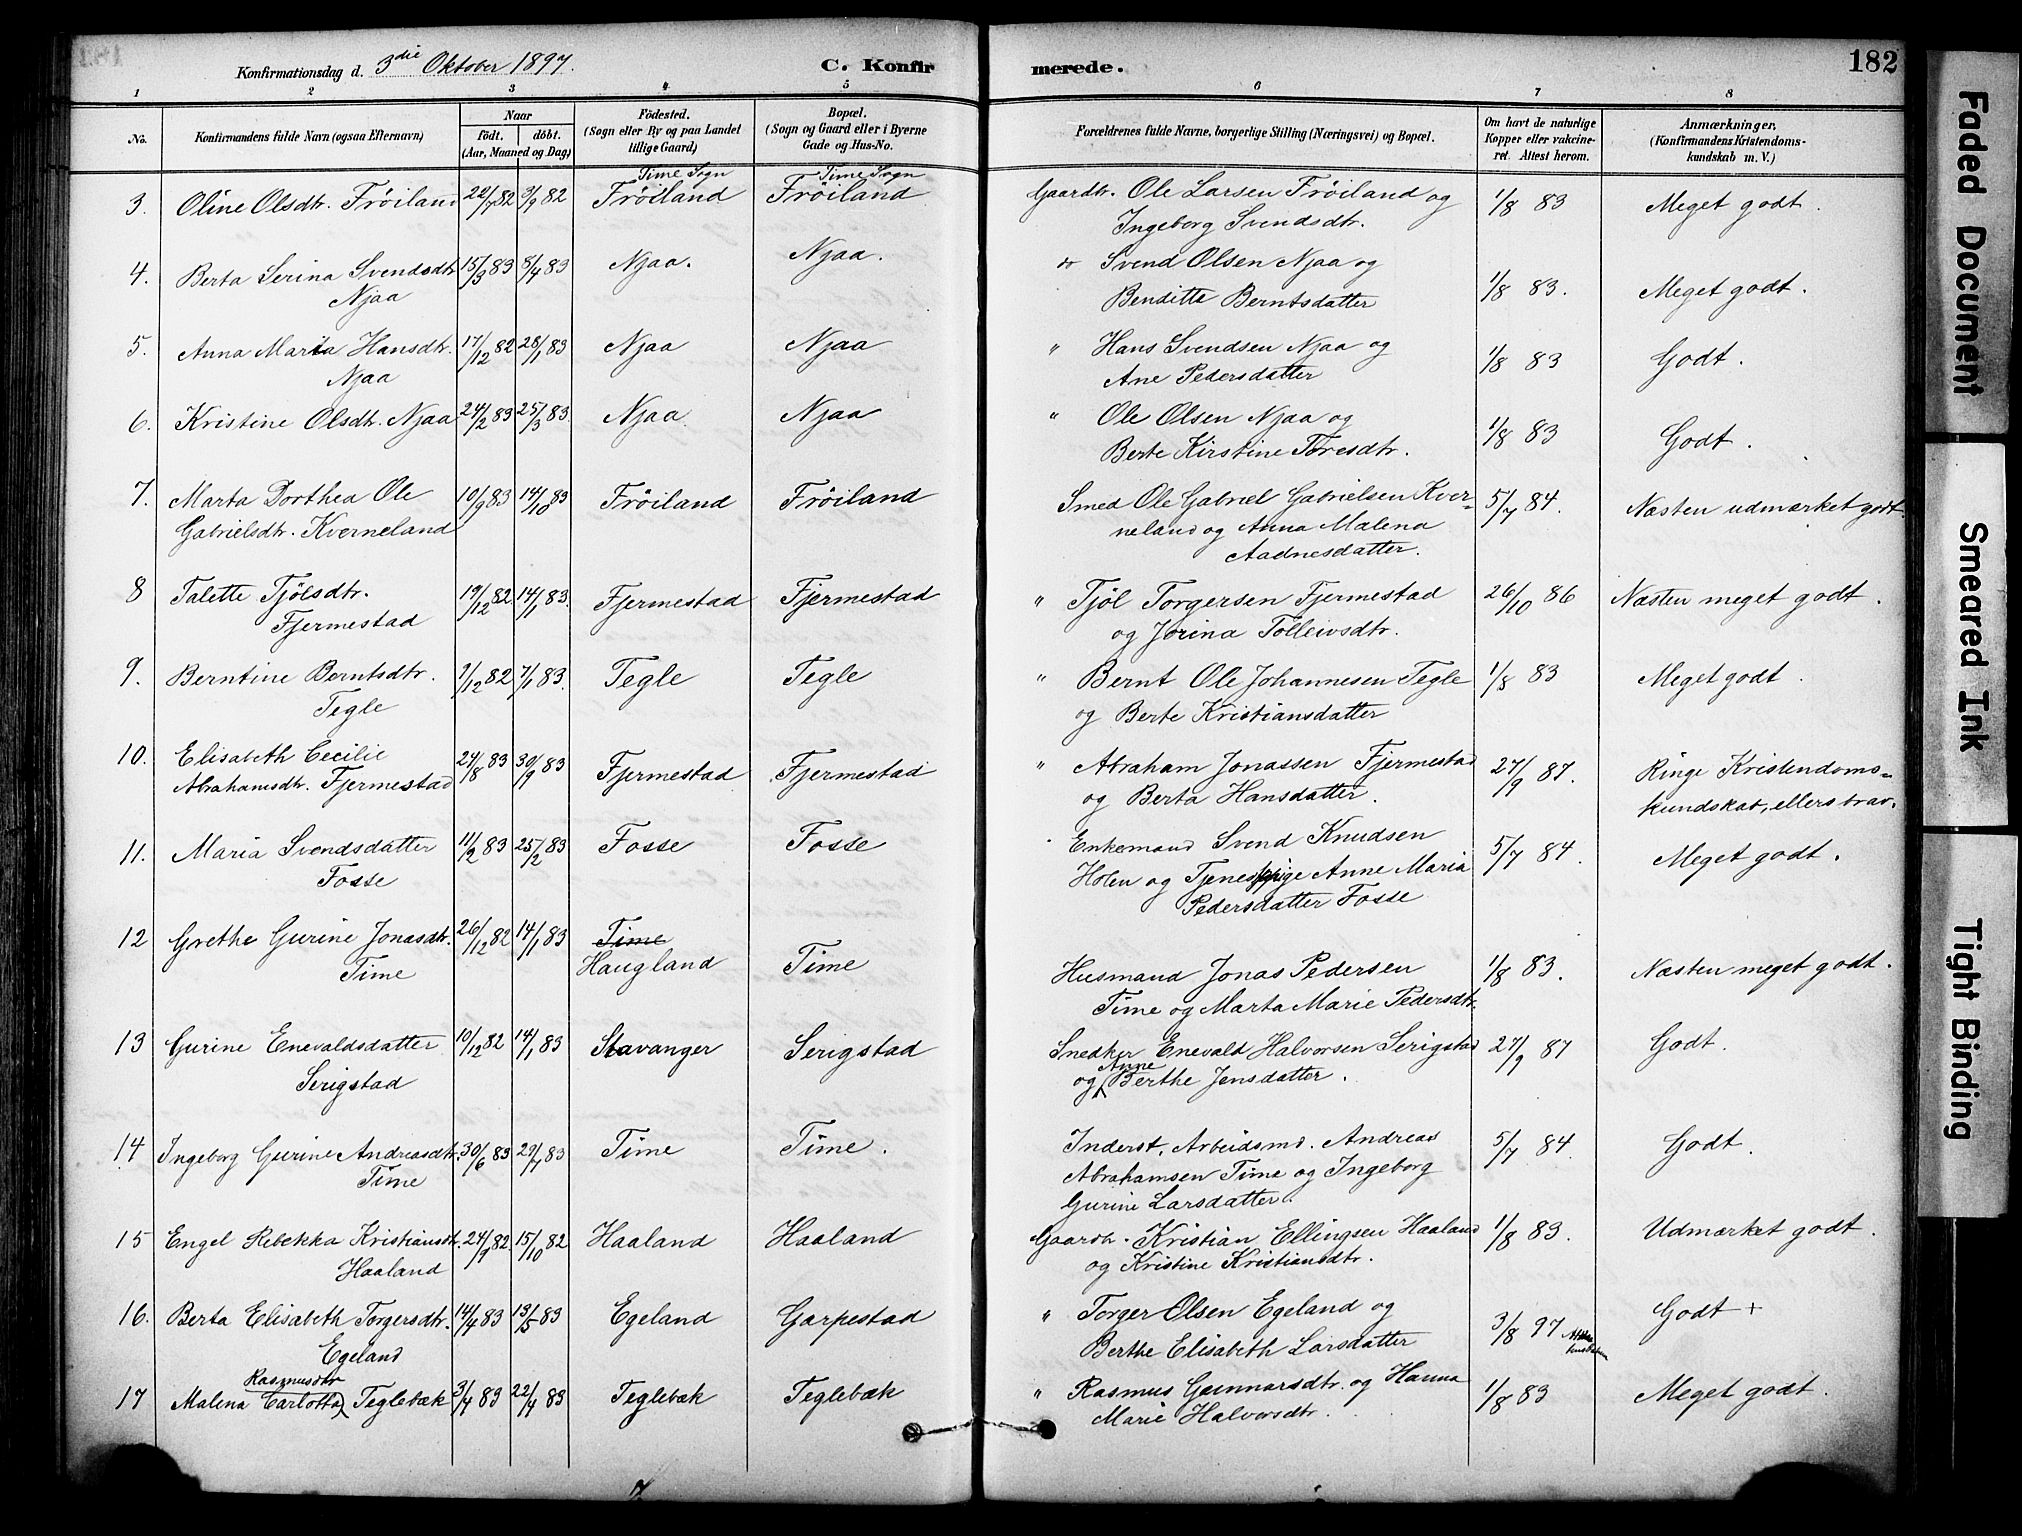 Konfirmationsdag d. 3die Oktober 1897.
C. Konfirmerede.
182
1 2 3 4 5 6 7 8
No.
Konfirmandens fulde Navn (ogsaa Efternavn)
Naar
födt. döbt.
(Aar, Maaned og Dag)
Födested.
(Sogn eller By og paa Landet
tillige Gaard)
Bopæl.
(Sogn og Gaard eller i Byerne
Gade og Hus-No.
Forældrenes fulde Navne, borgerlige Stilling (Næringsvei) og Bopæl.
Om havt de naturlige
Kopper eller vakcine-
ret. Attest herom.
Anmærkninger.
(Konfirmandens Kristendoms-
kundskab m. V.)
Time Sogn Time Sogn
3. Oline Olsdtr. Fröiland 22/7 82 3/9 82 Fröiland Fröiland Gaardbr. Ole Larsen Fröiland og 1/8 83 Meget godt.
Ingeborg Svendsdtr.
4. Berta Serina Svendsdtr 15/3 83 8/4 83 Njaa. Njaa. do Svend Olsen Njaa og
Njaa Benditte Berntsdatter 1/8 83. Meget godt.
5. Anna Maria Hansdtr. 17/12 82 28/1 83 Njaa Njaa " Hans Svendsen Njaa og 1/8 83 Godt.
Njaa Ane Pedersdatter
6. Kristine Olsdtr. Njaa 24/2 83 25/3 83 Njaa Njaa " Ole Olsen Njaa og 1/8 83 Godt.
Berte Kirstine Toresdtr.
7. Marta Dorthea Ole 10/9 83 14/10 83 Fröiland Fröiland Smed Ole Gabriel Gabrielsen Kver- 5/7 84. Næsten udmærket godt.
Gabrielsdtr. Kverneland neland og Anna Malena
Aadnesdatter.
8 Talette Tjölsdtr. 19/12 82 14/1 83. Fjermestad Fjermestad " Tjöl Torgersen Fjermestad 26/10 86 Næsten meget godt.
Fjermestad og Jorina Tolleivsdtr.
9. Berntine Berntsdtr. /12 82 7/1 83. Tegle Tegle " Bernt Ole Johannesen Tegle 1/8 83 Meget godt.
Tegle og Berte Kristiansdatter
10. Elisabeth Cecilie 24/8 83 30/9 83 Fjermestad Fjermestad " Abraham Jonassen Fjermestad 27/9 87. Ringe Kristendoms-
Abrahamsdtr. Fjermestad og Berta Hansdatter. kundskab, ellers brav.
11. Maria Svendsdatter 11/2 83 25/2 83 Fosse Fosse Enkemand Svend Knudsen 5/7 84. Meget godt.
Fosse Holen og Tjenestpige Anne Maria
Pedersdatter Fosse
12 Grethe Gurine Jonasdtr. 26/12 82 14/1 83 Time
Time Haugland Time Husmand Jonas Pedersen 1/8 83. Næsten meget godt.
Time og Marta Marie Pedersdtr.
13 Gurine Enevaldsdatter 10/12 82 14/1 83 Stavanger Serigstad Snedker Enevald Halvorsen Serigstad 27/9 87 Godt.
Serigstad og Anne Berthe Jensdatter.
14 Ingeborg Gurine Andreasdtr. 30/6 83 29/7 83 Time Time. Inderst, Arbeidsmd. Andreas 5/7 84. Godt.
Time Abrahamsen Time og Ingeborg
Gurine Larsdatter.
15 Engel Rebekka Kristiansdtr. 24/9 82. 15/10 82 Haaland Haaland Gaardbr. Kristian Ellingsen Haaland 1/8 83. Udmærket godt.
Haaland og Kristine Kristiansdtr.
16. Berta Elisabeth Torgersdtr. 14/4 83 13/5 83 Egeland Garpestad " Torger Olsen Egeland og 3/8 97 Godt +
Egeland Berthe Elisabeth Larsdatter
Rasmusdtr
17 Malena Carlotta Teglebæk 3/4 83 22/4 83 Teglebæk Teglebæk " Rasmus Gunnarsdtr. og Hanna 1/8 83 Meget godt.
Marie Halvorsdtr.
Faded Document
Smeared Ink
Tight Binding